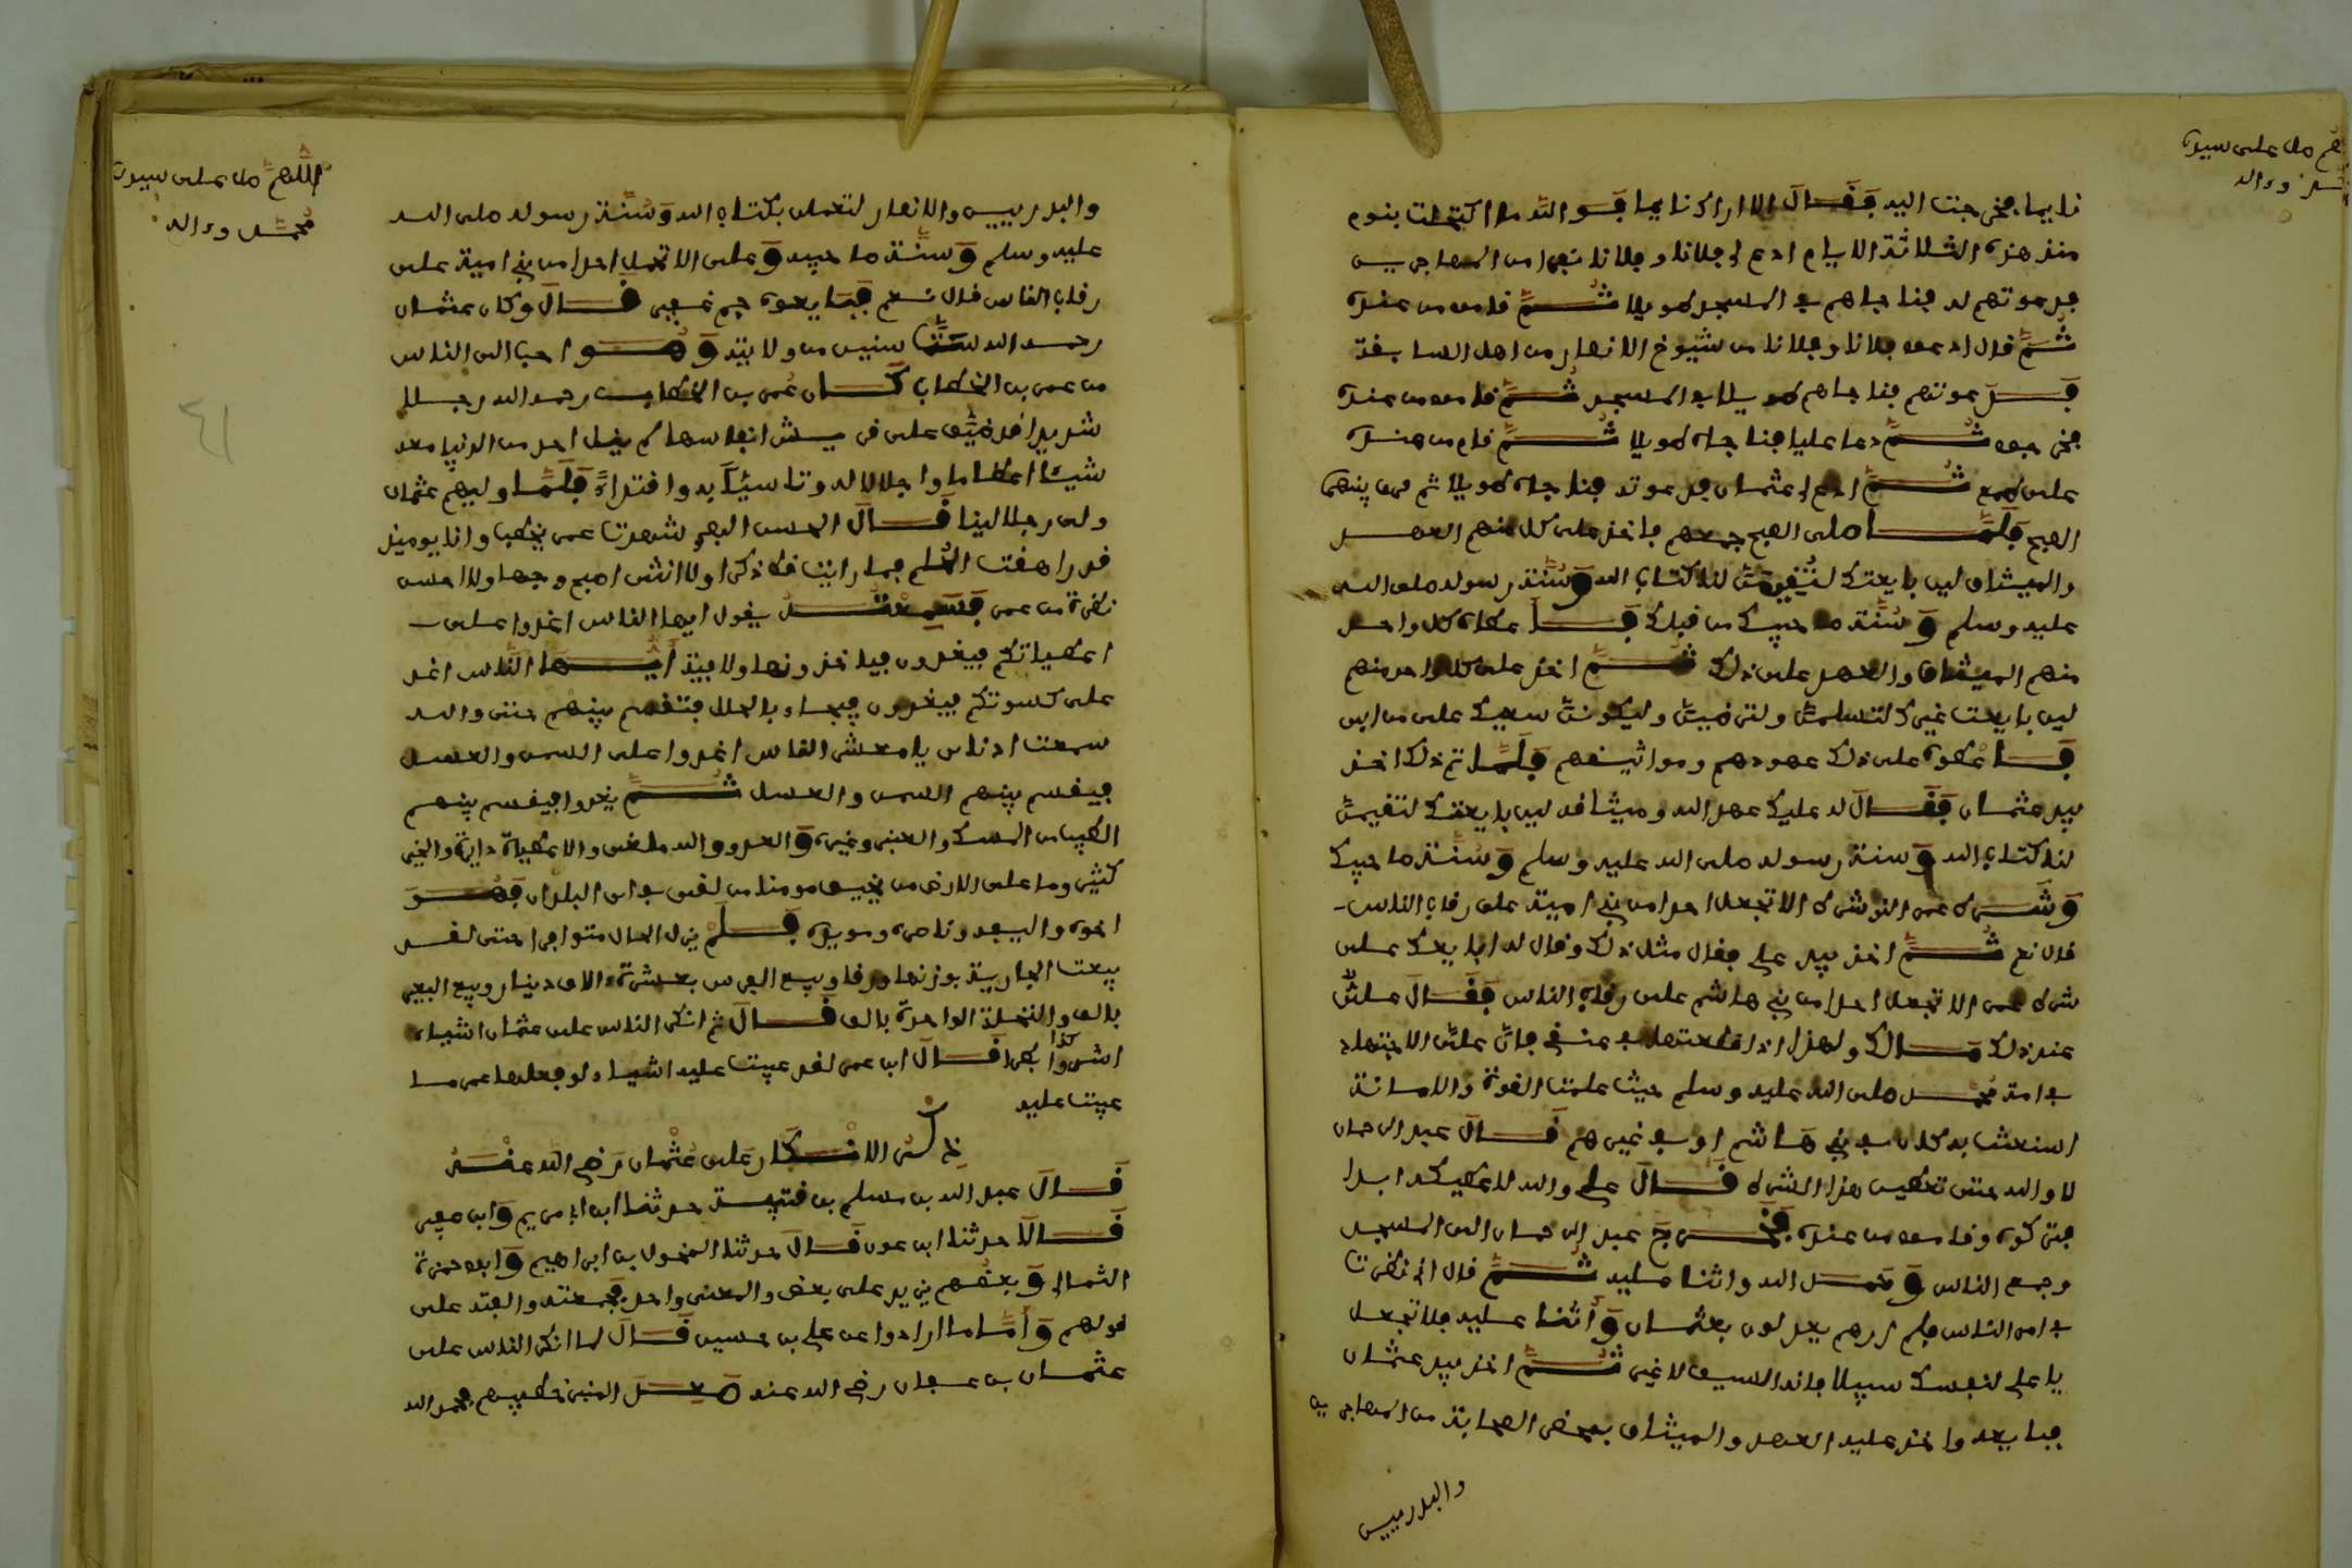 نايما فخرجت اليه فقال الا اراك نايما فو الله ما اكتحلت بنوم
منذ هذه الثلاثة الايام ادع لي فلانا وفلانا نفرا من المهاجرين
فدعوتهم له فناجاهم في المسجد طويلا ثم قاموا من عنده
ثم قال ادعوا فلانا وفلانا من شيوخ الانصار من اهل السابقة
فدعوتهم فناجاهم طويلا في المسجد ثم قاموا من عنده
فخرجوا ثم دعا عليا فناجاه طويلا ثم قام من عنده
على طمع ثم ادع لي عثمان فدعوته فناجاه طويلا ثم فرق بينهما
الصبح فلما صلى الصبح جمعهم فاخذ على كل منهم العهد
والميثاق لين بايعتك لتقيمن لنا كتاب الله وسنة رسوله صلى الله
عليه وسلم وسنة صاحبيك من قبلك فاعطاه كل واحد
منهم الميثاق والعهد على ذلك ثم اخذ على كل واحد منهم
لين بايعت غيرك لتسلمن ولترضين وليكونن سيفك على من ابى
فاعطوه على ذلك عهودهم ومواثيقهم فلما تم ذلك اخذ
بيد عثمان فقال له عليك عهد الله وميثاقه لين بايعتك لتقيمن
لنا كتاب الله وسنة رسوله صلى الله عليه وسلم وسنة صاحبيك
وشرط عمر الا تجعل احدا من بني امية على رقاب الناس
قال نعم ثم اخذ بيد علي فقال مثل ذلك وقال له ابايعك على
شرط عمر الا تجعل احدا من بني هاشم على رقاب الناس فقال علي
عند ذلك مالك ولهذا اذا قطعتها في عنقي فان علي الاجتهاد
في امة محمد صلى الله عليه وسلم حيث علمت القوة والامانة
استعنت به كان في بني هاشم او في غيرهم قال عبد الرحمان
لا والله حتى تعطيني هذا الشرط قال علي والله لا اعطيكه ابدا
فتركوه وقاموا من عنده فخرج عبد الرحمان الى المسجد
وجمع الناس وحمد الله واثنا عليه ثم قال اني نظرت
في امر الناس فلم ارهم يعدلون بعثمان واثنا عليه فلا تجعل
يا علي لنفسك سبيلا فانه السيف لا غير ثم اخذ بيد عثمان
فبايعه واخذ عليه العهد والميثاق بمحضر الصحابة من المهاجرين
والبدريين
اللهم صل على سيدنا
محمد وءاله
والبدريين والانصار لتعملن بكتاب الله وسنة رسوله صلى الله
عليه وسلم وسنة صاحبيه وعلى الا تحمل احدا من بني امية على
رقاب الناس قال نعم فبايعوه جم غفير قال وكان عثمان
رحمه الله ستا سنين من ولايته وهو احب الى الناس
من عمر بن الخطاب كان عمر بن الخطاب رحمه الله رجلا
شديدا قد ضيق على قريش انفاسها لم ينل احد من الدنيا معه
شيئا اعظاما واجلالا له وتاسيا به واقتداء فلما وليهم عثمان
ولى رجلا لينا قال الحسن البصري شهدت عمر يخطب وانا يوميذ
قد راهقت الحلم فما رايت قط ذكرا ولا انثى اصبح وجها ولا احسن
نظرة من عمر فسمعته يقول ايها الناس اغدوا على
اعطياتكم فيغدون فياخذونها ولاببة ايها الناس اغد
على كسوتكم فيغدون فيجاء بالحلل فتقسم بينهم حتى والله
سمعت اذناي يا معشر الناس اغدوا على السمن والعسل
فيقسم بينهم السمن والعسل ثم يغدوا فيقسم بينهم
الطيب من المسك والعنبر وغيره والعدو والله ما غفر والاعطيات دايرة والخير
كثير وما على الارض من يخيف مومنا من لقي في اي البلدان فهو
اخوه واليفه وناصره ومويده فلم يزل المال متوافرا حتى لقد
بيعت الجارية بوزنها ورقا وبيع الفرس بعشرة ءالاف دينار وبيع البعير
بالف والنخلة الواحدة بالف قال ثم انكر الناس على عثمان اشياء
اشرا وبطرا قال ابن عمر لقد عيبت عليه اشياء لو فعلها عمر ما
عيبت عليه
ذكر الانكار على عثمان رضي الله عنه
قال عبد الله بن مسلم بن قتيبة حدثنا ابن ابي مريم وابن عفير
قالا حدثنا ابن عون قال حدثنا المخول بن ابراهيم وابو حمزة
الثمالي وبعضهم يزيد على بعض والمعنى واحد فجمعته والفته على
قولهم وأما ما ارادوا عن علي بن حسين قال لما انكر الناس على
عثمان بن عفان رضي الله عنه صعد المنبر خطيبهم فحمد الله